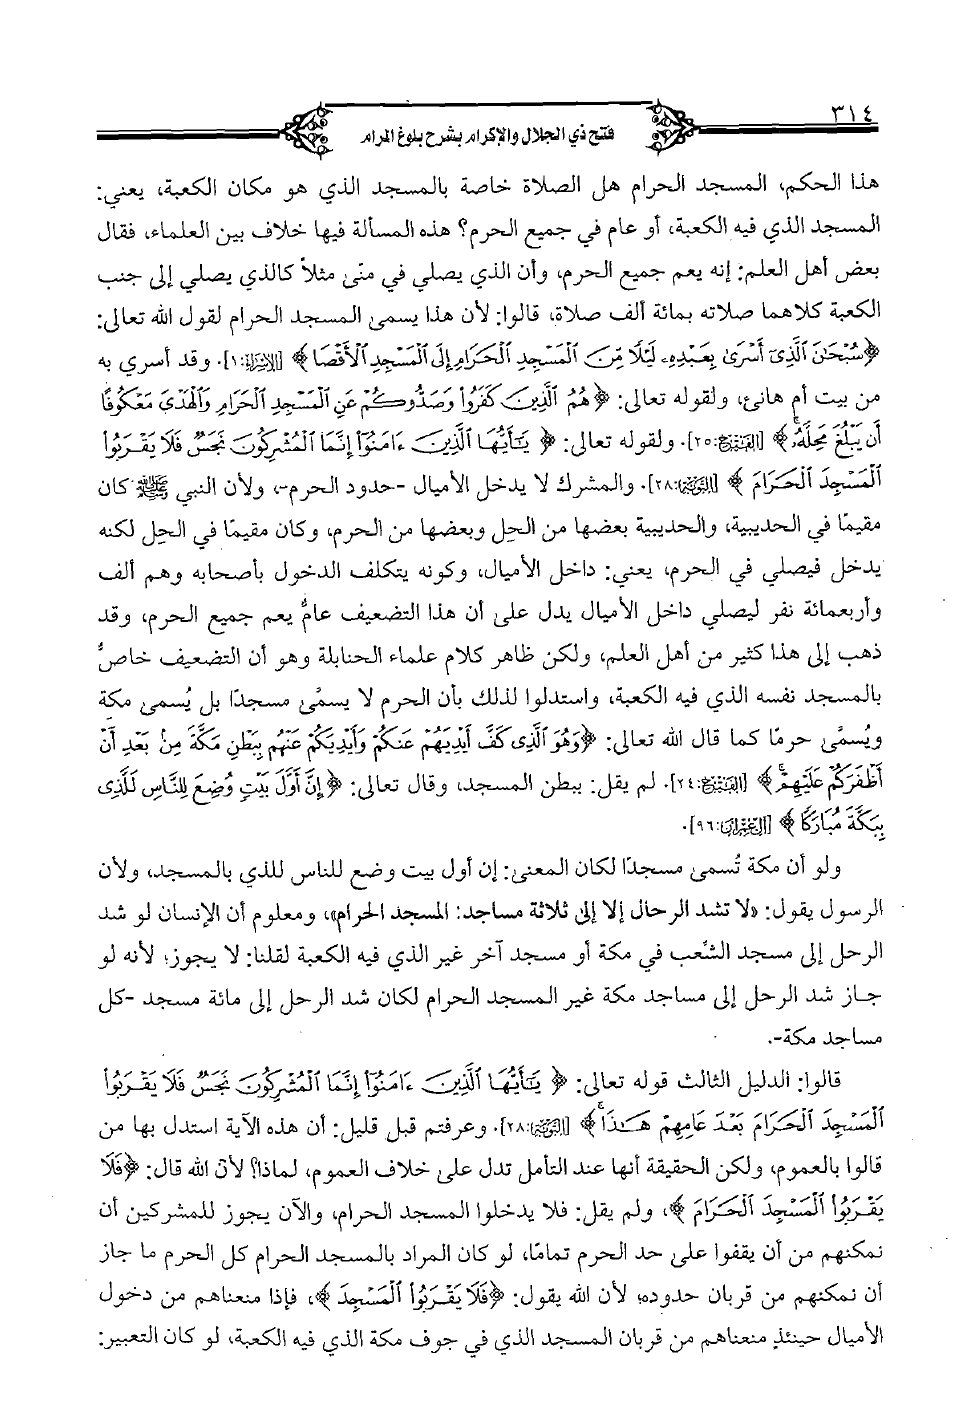 ٣١٤
فتح ذي الجلال والإكرام بشرح بلوغ المرام
هذا الحكم، المسجد الحرام هل الصلاة خاصة بالمسجد الذي هو مكان الكعبة، يعني:
المسجد الذي فيه الكعبة، أو عام في جميع الحرم؟ هذه المسألة فيها خلاف بين العلماء، فقال
بعض أهل العلم: إنه يعم جميع الحرم، وأن الذي يصلي في منًى مثلاً كالذي يصلي إلى جنب
الكعبة كلاهما صلاته بمائة ألف صلاة، قالوا: لأن هذا يسمى المسجد الحرام لقول الله تعالى:
﴿سُبْحَٰنَ ٱلَّذِىٓ أَسْرَىٰ بِعَبْدِهِۦ لَيْلًا مِّنَ ٱلْمَسْجِدِ ٱلْحَرَامِ إِلَى ٱلْمَسْجِدِ ٱلْأَقْصَا﴾ [الإسراء:١]. وقد أسري به
من بيت أم هانئ، ولقوله تعالى: ﴿هُمُ ٱلَّذِينَ كَفَرُوا۟ وَصَدُّوكُمْ عَنِ ٱلْمَسْجِدِ ٱلْحَرَامِ وَٱلْهَدْىَ مَعْكُوفًا
أَن يَبْلُغَ مَحِلَّهُۥ﴾ [الفتح:٢٥]. ولقوله تعالى: ﴿يَٰٓأَيُّهَا ٱلَّذِينَ ءَامَنُوٓا۟ إِنَّمَا ٱلْمُشْرِكُونَ نَجَسٌ فَلَا يَقْرَبُوا۟
ٱلْمَسْجِدَ ٱلْحَرَامَ﴾ [التوبة:٢٨]. والمشرك لا يدخل الأميال -حدود الحرم-، ولأن النبي ﷺ كان
مقيمًا في الحديبية، والحديبية بعضها من الحِل وبعضها من الحرم، وكان مقيمًا في الحِل لكنه
يدخل فيصلي في الحرم، يعني: داخل الأميال، وكونه يتكلف الدخول بأصحابه وهم ألف
وأربعمائة نفر ليصلي داخل الأميال يدل على أن هذا التضعيف عامٌّ يعم جميع الحرم، وقد
ذهب إلى هذا كثير من أهل العلم، ولكن ظاهر كلام علماء الحنابلة وهو أن التضعيف خاصٌّ
بالمسجد نفسه الذي فيه الكعبة، واستدلوا لذلك بأن الحرم لا يسمَّى مسجدًا بل يُسمى مكة
ويُسمَّى حرمًا كما قال الله تعالى: ﴿وَهُوَ ٱلَّذِى كَفَّ أَيْدِيَهُمْ عَنكُمْ وَأَيْدِيَكُمْ عَنْهُم بِبَطْنِ مَكَّةَ مِنۢ بَعْدِ أَنْ
أَظْفَرَكُمْ عَلَيْهِمْ﴾ [الفتح:٢٤]. لم يقل: ببطن المسجد، وقال تعالى: ﴿إِنَّ أَوَّلَ بَيْتٍ وُضِعَ لِلنَّاسِ لَلَّذِى
بِبَكَّةَ مُبَارَكًا﴾ [آل عمران:٩٦].
ولو أن مكة تُسمى مسجدًا لكان المعنى: إن أول بيت وضع للناس للذي بالمسجد، ولأن
الرسول يقول: «لا تشد الرحال إلا إلى ثلاثة مساجد: المسجد الحرام»، ومعلوم أن الإنسان لو شد
الرحل إلى مسجد الشِّعب في مكة أو مسجد آخر غير الذي فيه الكعبة لقلنا: لا يجوز؛ لأنه لو
جاز شد الرحل إلى مساجد مكة غير المسجد الحرام لكان شد الرحل إلى مائة مسجد -كل
مساجد مكة-.
قالوا: الدليل الثالث قوله تعالى: ﴿يَٰٓأَيُّهَا ٱلَّذِينَ ءَامَنُوٓا۟ إِنَّمَا ٱلْمُشْرِكُونَ نَجَسٌ فَلَا يَقْرَبُوا۟
ٱلْمَسْجِدَ ٱلْحَرَامَ بَعْدَ عَامِهِمْ هَٰذَا﴾ [التوبة:٢٨]. وعرفتم قبل قليل: أن هذه الآية استدل بها من
قالوا بالعموم، ولكن الحقيقة أنها عند التأمل تدل على خلاف العموم، لماذا؟ لأن الله قال: ﴿فَلَا
يَقْرَبُوا۟ ٱلْمَسْجِدَ ٱلْحَرَامَ﴾، ولم يقل: فلا يدخلوا المسجد الحرام، والآن يجوز للمشركين أن
نمكنهم من أن يقفوا على حد الحرم تمامًا، لو كان المراد بالمسجد الحرام كل الحرم ما جاز
أن نمكنهم من قربان حدوده؛ لأن الله يقول: ﴿فَلَا يَقْرَبُوا۟ ٱلْمَسْجِدَ﴾، فإذا منعناهم من دخول
الأميال حينئذٍ منعناهم من قربان المسجد الذي في جوف مكة الذي فيه الكعبة، لو كان التعبير: